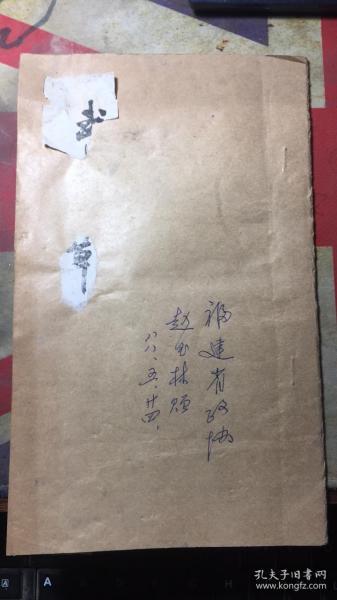 草
福建省政协
赵玉林颂
八八.五.廿四.
A
孔夫子旧书网
www.kongfz.com